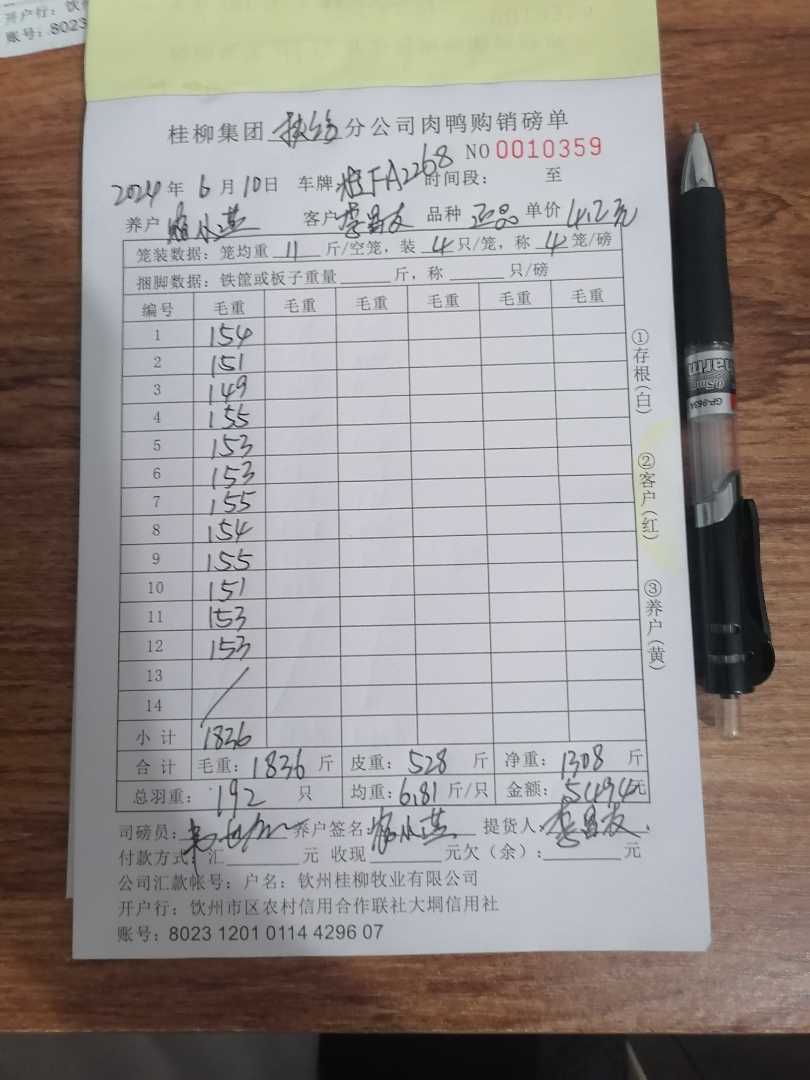 开户行：钦
账号：8023
桂柳集团 分公司肉鸭购销磅单
NO 0010359
2024年 6月 10日 车牌 FA2268 时间段： 至
养户 客户 李昌友 品种 正品 单价 4.2元
笼装数据：笼均重 11 斤/空笼，装 4 只/笼，称 4 笼/磅
捆脚数据：铁筐或板子重量 斤，称 只/磅
编号 毛重 毛重 毛重 毛重 毛重 毛重
1 154
2 151
3 149
4 155
5 153
6 153
7 155
8 154
9 155
10 151
11 153
12 153
13 /
14
小计 1836
合计 毛重：1836 斤 皮重：528 斤 净重：1308 斤
总羽重：192 只 均重：6.81 斤/只 金额：5494元
①存根（白）
②客户（红）
③养户（黄）
司磅员： 养户签名： 提货人：李昌友
付款方式：汇 元 收现 元欠（余）： 元
公司汇款帐号：户名：钦州桂柳牧业有限公司
开户行：钦州市区农村信用合作联社大垌信用社
账号：8023 1201 0114 4296 07